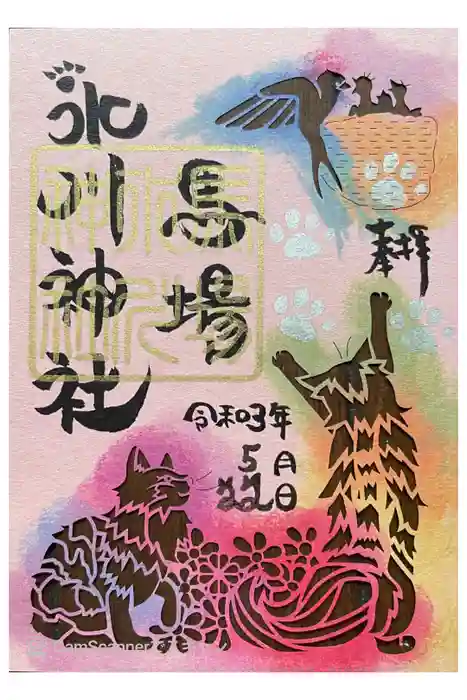 奉拝
馬場
氷川神社
令和03年
5月
22日
CamScanner